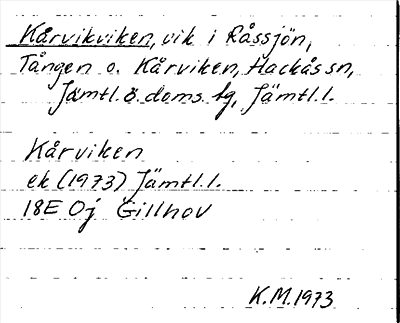 Kårvikviken, vik i Råssjön,
Tången o. Kårviken, Hackås sn,
Jämtl. ö. doms. tg, Jämtl. l.
Kårviken
ek (1973) Jämtl. l.
18E 0j Gillhov
K.M. 1973